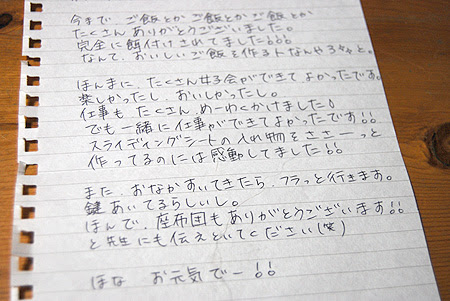 今まで ご飯とか ご飯とか ご飯とか
たくさん ありがとうございました。
完全に餌付けされてました!!!
なんて、おいしいご飯を作る人なんやろう、と。
ほんまに たくさん女子会ができて よかったです。
楽しかったし、おいしかったし。
仕事も たくさん めーわくかけました!
でも 一緒に 仕事ができてよかったです!!
スライディングシートの入れ物を ささーっと
作ってるのには感動してました!!
また、おなかすいてきたら、フラっと行きます。
鍵あいてるらしいし。
ほんで、座布団もありがとうございます!!
と先生にも伝えといてください(笑)
ほな お元気でー!!